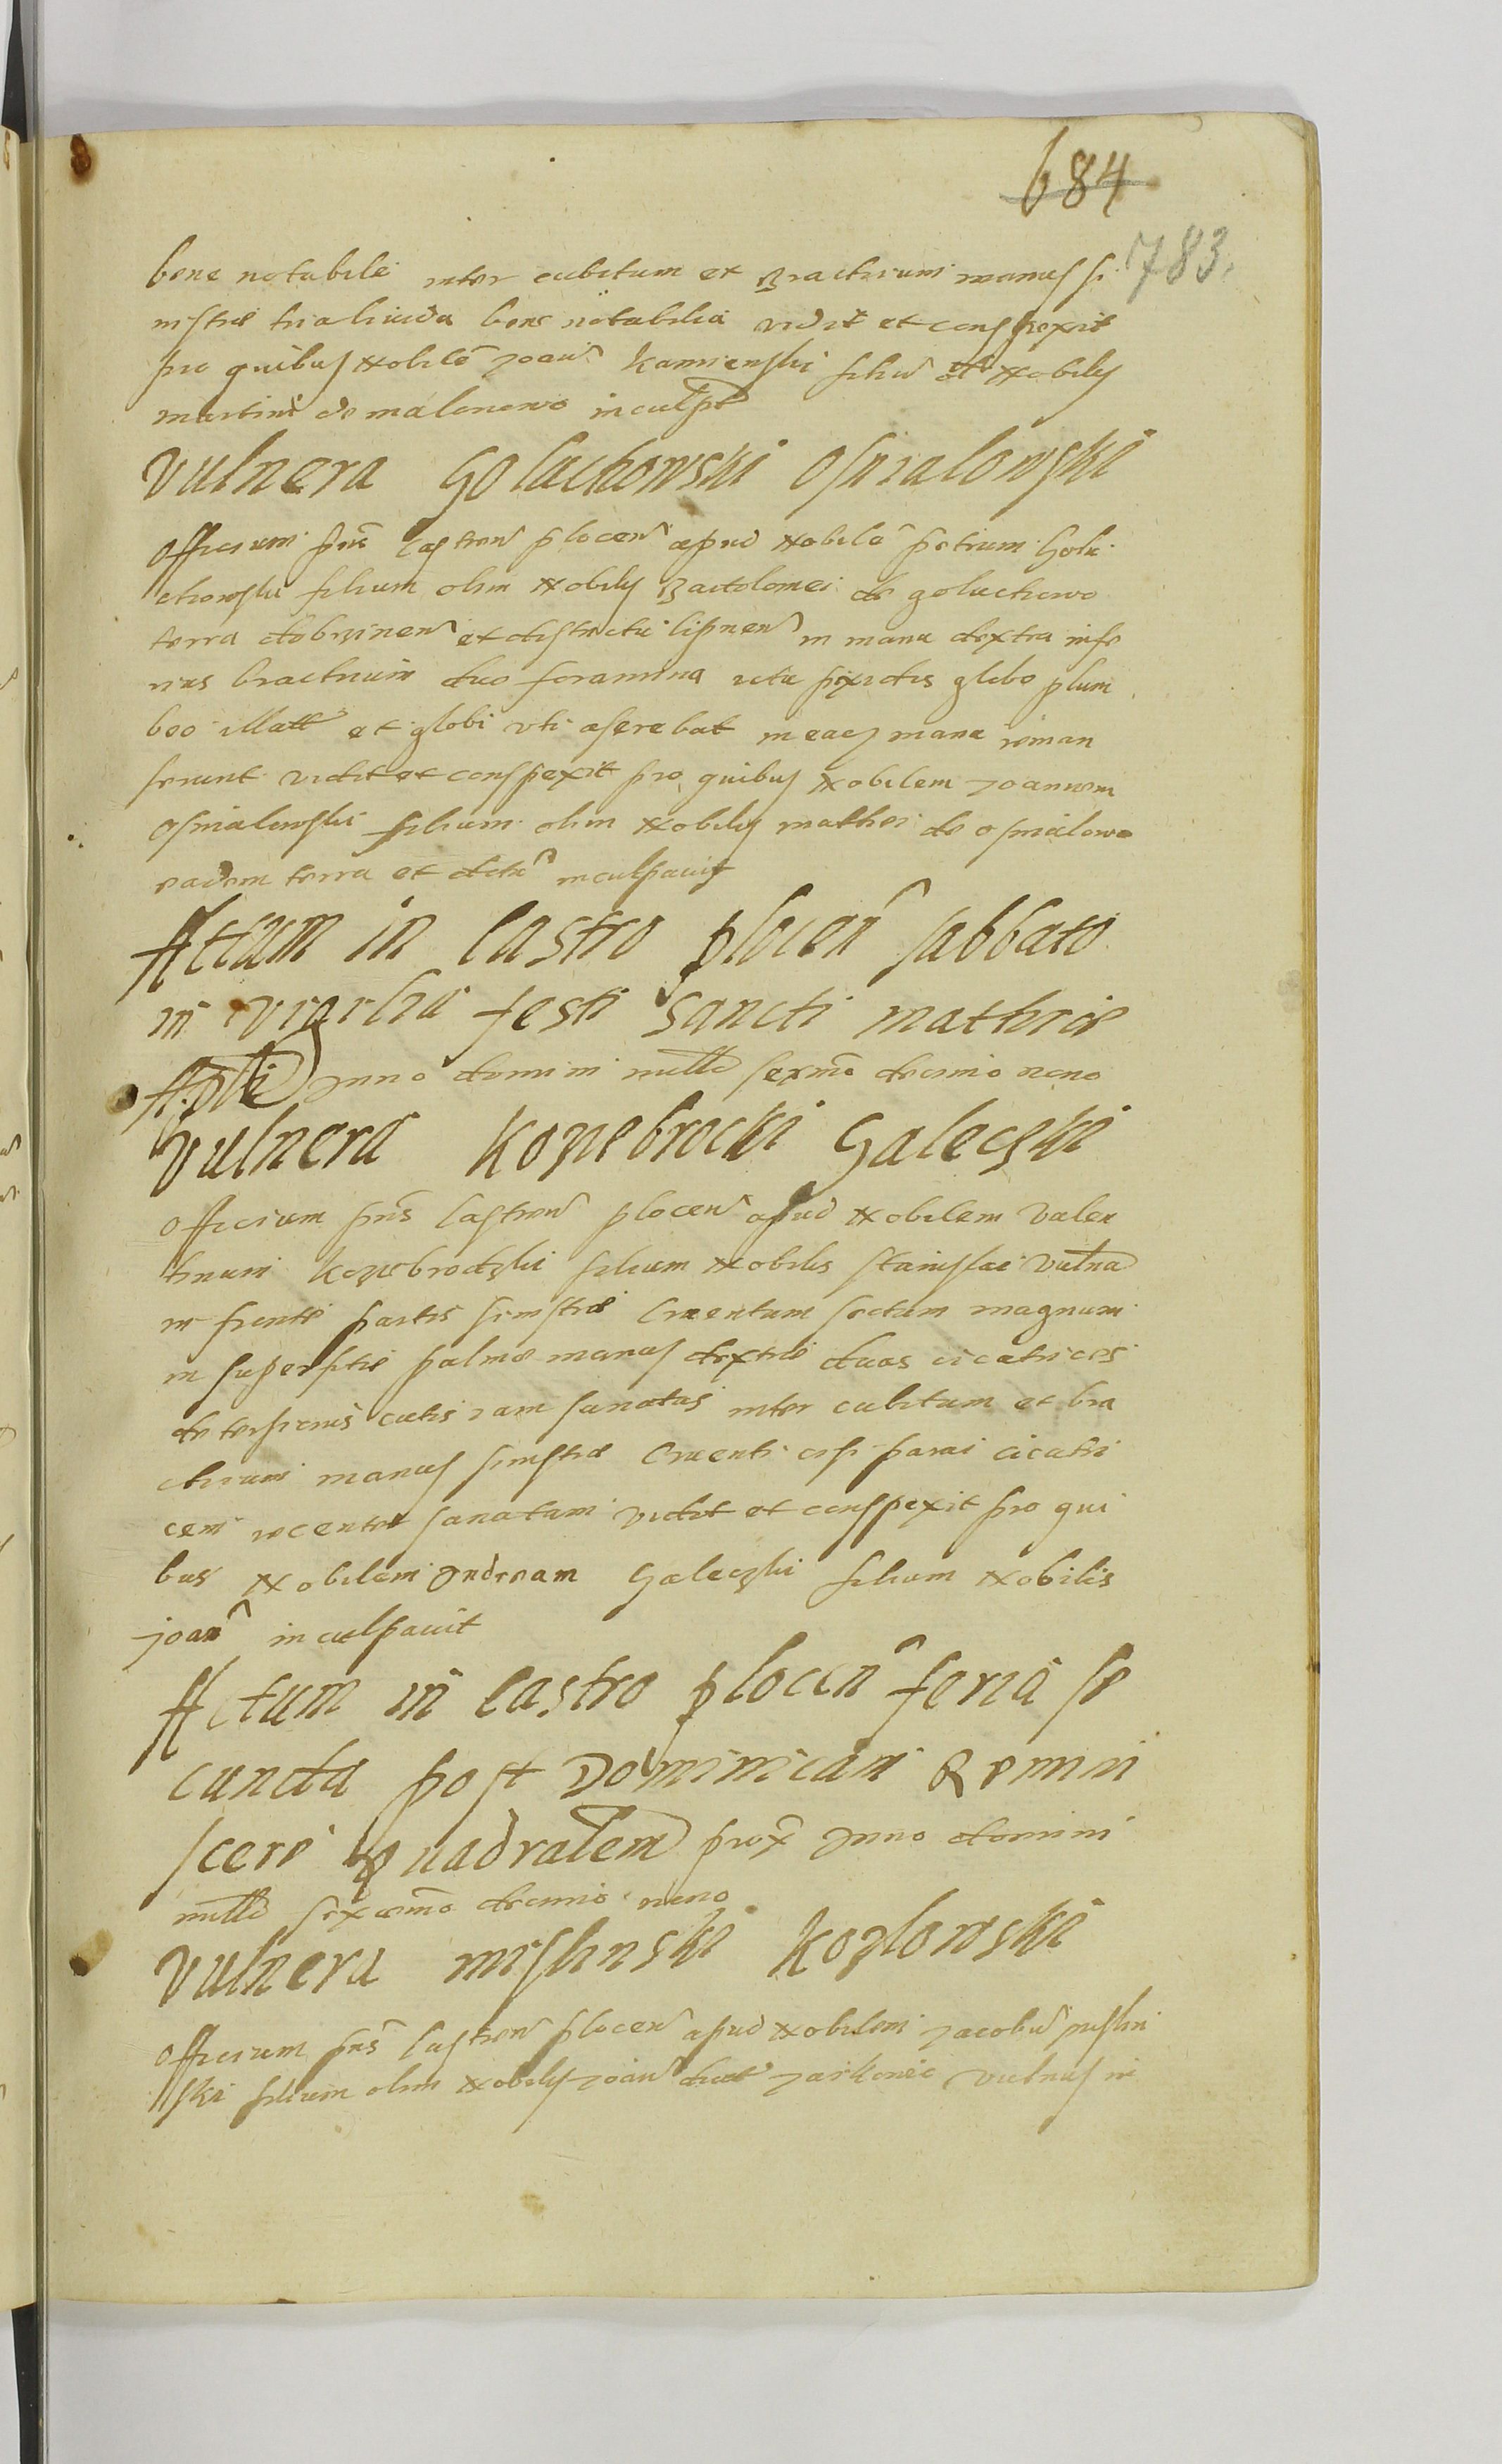 684
783.
bene notabile inter cubitum et Brachium manus si
nistræ tria liuida bene notabilia vidit et conspexit
pro quibus Nobilē Joañ Kamienski filiū Nobilis
martini de malonowo inculpt
Vulnera Goluchowski Osmalowski
Officium pñs Castreñ plocen̄ apud Nobilē petrum Golu
chowski filium olim Nobilis Bartolomei de goluchowo
terra dobrzinen̄ et districtu lipnen̄ in manu dextra infe
rius brachium duo foramina ictu pixidis globo plum
beo illatt et globi vti aserebat in eaq manu reman
serunt vidit et conspexit pro quibus Nobilem Joannem
Osmalowski filium olim Nobilis mathei de osmalowo
eadem terra et distr inculpauit
Actum in Castro plocen̄ sabbato
in vigilia festi Sancti mathiæ
Apli Anno domini millo sexmo decimo nono
Vulnera Kozebrocki Galeczki
Officium pñs Castren̄ plocen̄ apud Nobilem Valen
tinum Kozebrodzki filium Nobilis Stanislai Vulna
in fronte partis sinistræ Cruentum sectum magnum
in superfitie palmæ manus dextræ duas cicatrices
detersionis cutis iam sanatas inter cubitum et bra
chium manus sinistræ Cruenti cesi parui cicatri
cem recenter sanatam vidit et conspexit pro qui
bus Nobilem Andream Galeczki filium Nobilis
joan̄ inculpauit
Actum in Castro plocen̄ feria se
cunda post Dominicam Remini
scere quadralem prox Anno domini
millo sexcmo decimo nono
Vulnera mislinski Kozlowski
Officium pñs Castren̄ plocen̄ apud Nobilem Jacobū mislin
ski filium olim Nobilis Joan̄ dict Jarkonie vulnus in